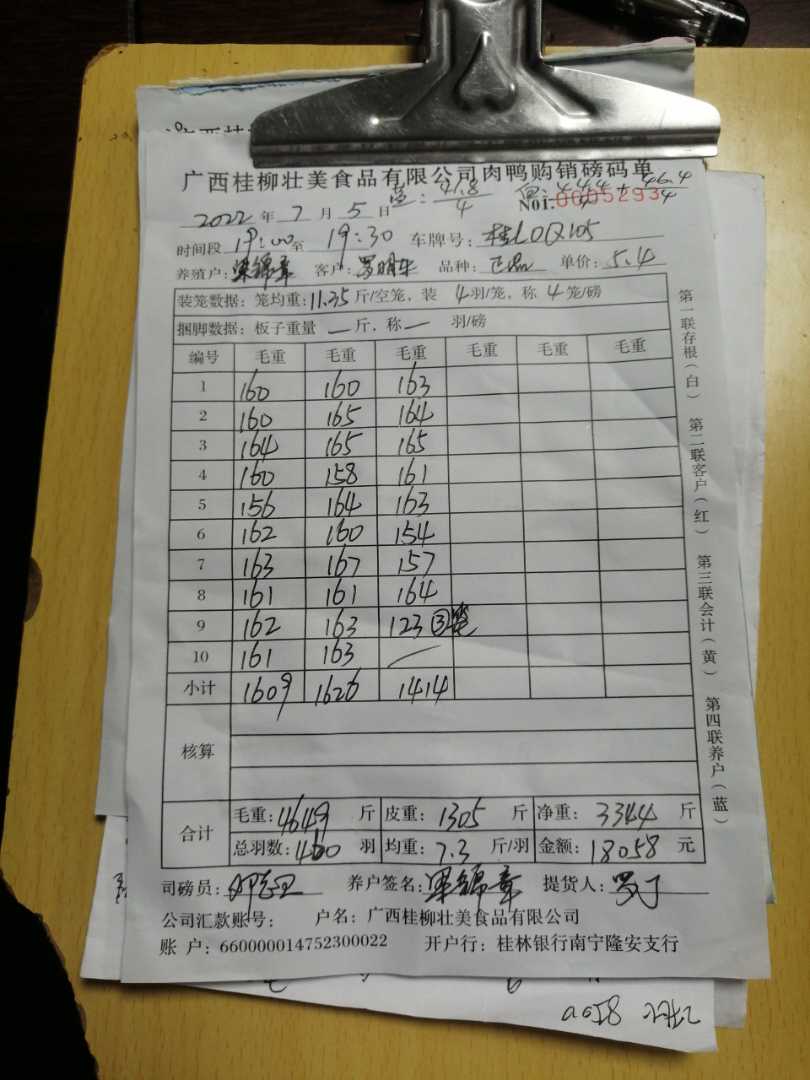 广西桂柳壮美食品有限公司肉鸭购销磅码单
2022年7月5日 蓝:41.8/4 白:44.4/4 + 46.4/4 No1.0605293
时间段19:00至19:30 车牌号:桂LOQ105
养殖户:梁锦章 客户:罗明生 品种:正品 单价:5.4
装笼数据:笼均重:11.35斤/空笼,装4羽/笼,称4笼/磅
捆脚数据:板子重量—斤,称— 羽/磅
编号 毛重 毛重 毛重 毛重 毛重 毛重
1 160 160 163
2 160 165 164
3 164 165 165
4 160 158 161
5 156 164 163
6 162 160 154
7 163 167 157
8 161 161 164
9 162 163 123③笼
10 161 163
小计 1609 1626 1414
核算
合计 毛重:4649斤 皮重:1305斤 净重:3344斤
总羽数:460羽 均重:7.3斤/羽 金额:18058元
司磅员: 养户签名:梁锦章 提货人:
公司汇款账号: 户名:广西桂柳壮美食品有限公司
账 户:660000014752300022 开户行:桂林银行南宁隆安支行
第一联存根(白) 第二联客户(红) 第三联会计(黄) 第四联养户(蓝)